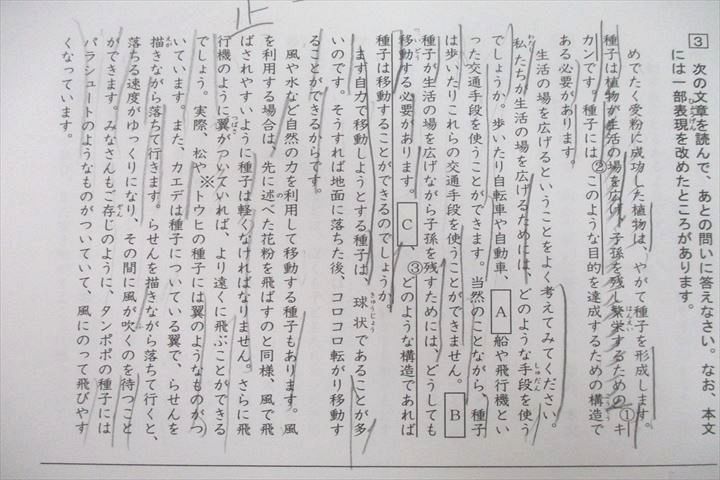 3 次の文章を読んで、あとの問いに答えなさい。なお、本文
には一部表現を改めたところがあります。
めでたく受粉に成功した植物は、やがて種子を形成します。
種子は植物が生活の場を広げ、子孫を残し繁栄するための①キ
カンです。種子には②このような目的を達成するための構造で
ある必要があります。
生活の場を広げるということをよく考えてみてください。
私たちが生活の場を広げるためには、どのような手段を使う
でしょうか。歩いたり自転車や自動車、A船や飛行機とい
った交通手段を使うことができます。当然のことながら、種子
は歩いたりこれらの交通手段を使うことができません。B
種子が生活の場を広げながら子孫を残すためには、どうしても
移動する必要があります。C、③どのような構造であれば
種子は移動することができるのでしょうか。
まず自力で移動しようとする種子は、球状であることが多
いのです。そうすれば地面に落ちた後、コロコロ転がり移動す
ることができるからです。
風や水など自然の力を利用して移動する種子もあります。風
を利用する場合は、先に述べた花粉を飛ばすのと同様、風で飛
ばされやすいように種子は軽くなければなりません。さらに飛
行機のように翼がついていれば、より遠くに飛ぶことができる
でしょう。実際、松や※トウヒの種子には翼のようなものがつ
いています。また、カエデは種子についている翼で、らせんを
描きながら落ちて行きます。らせんを描きながら落ちて行くと、
落ちる速度がゆっくりになり、その間に風が吹くのを待つこと
ができます。みなさんもご存じのように、タンポポの種子には
パラシュートのようなものがついていて、風にのって飛びやす
くなっています。